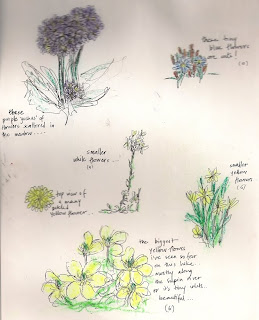 these tiny
blue flowers
are wild!
these
purple
flowers scattered in
the meadow....
smaller
white flowers...
top view of
a many
petaled
yellow flower
smaller
yellow
flowers
the biggest
yellow flower
I've seen so far
on this hike.
mostly along
the
river
or it's tiny
beautiful...